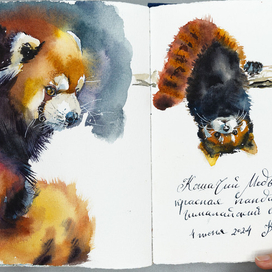 Кошачий Медв
красная панда
гималайский
1 июня 2024